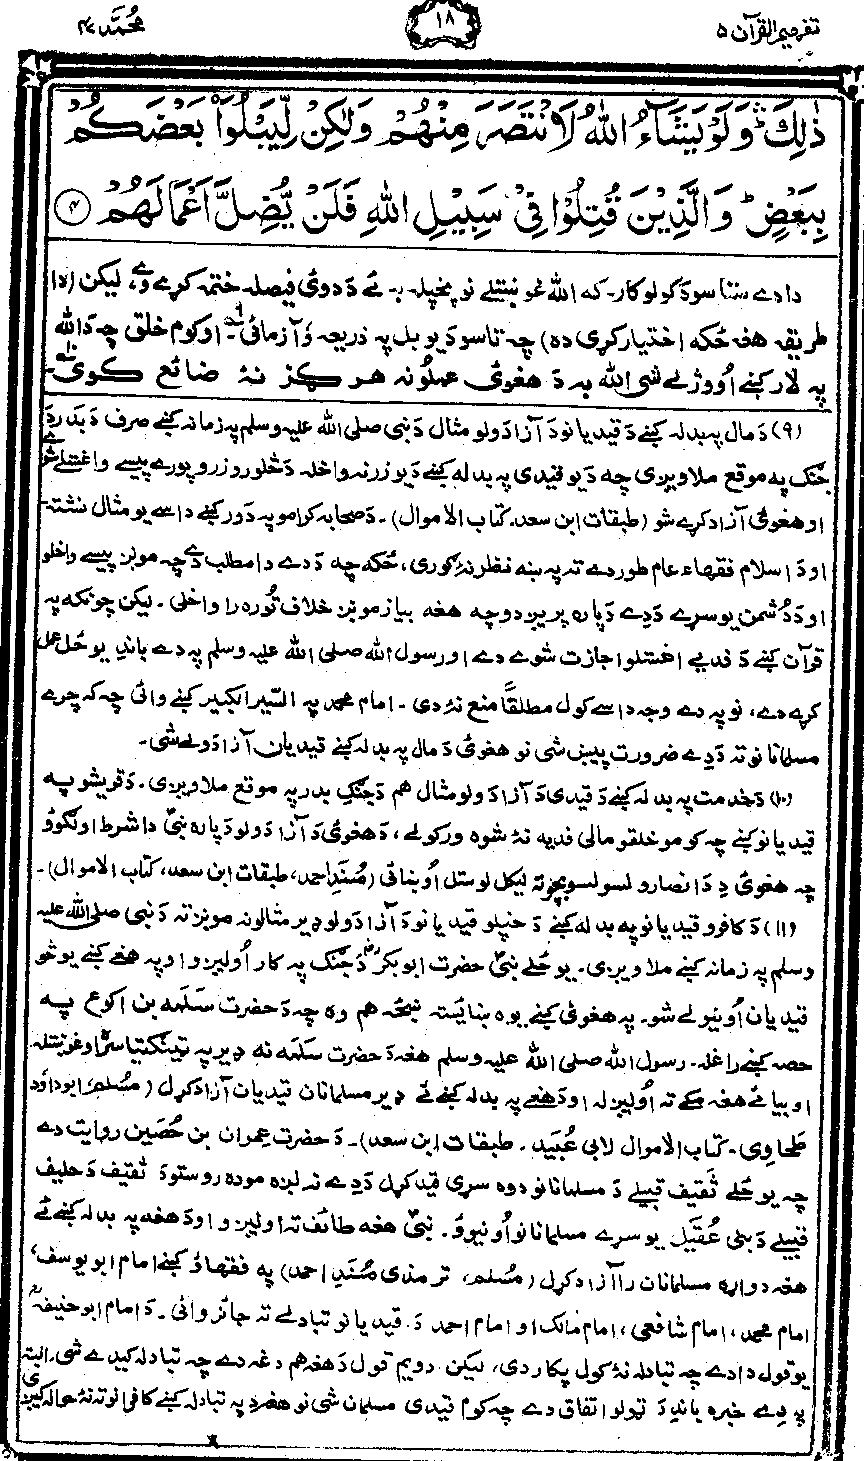 تفهيم القرآن ۵
۱۸
محُمَّد ۴۷
ذٰلِكَ ۛؕ وَلَوْ يَشَآءُ اللّٰهُ لَانْتَصَرَ مِنْهُمْ وَلٰكِنْ لِّيَبْلُوَا۟ بَعْضَكُمْ
بِبَعْضٍ ؕ وَالَّذِيْنَ قُتِلُوْا فِيْ سَبِيْلِ اللّٰهِ فَلَنْ يُّضِلَّ اَعْمَالَهُمْ ۴
دا دے ستاسو دَ کولو کار۔ که الله غوښتلے نو پخپله به ئے دَ دوئ فیصله ختمه کړے وے، لیکن (دا
طریقه هغه ځکه اختیار کړی ده) چه تاسو دَ یو بل په ذریعه وَ آزمائی۔ او کوم خلق چه دَ الله
په لار کښے اُووژلے شی الله به دَ هغوئ عملُونه هر ګز نهٔ ضائع کوی
(۹) دَ مال په بدله کښے دَ قیدیانو دَ آزادولو مثال دَ نبی صلی الله علیه وسلم په زمانه کښے صرف دَ بدر دَ
جنګ په موقع ملاویږی چه دَ یو قیدی په بدله کښے دَ یو زر نه واخله دَ څلورو زرو پورے پیسے واغستلے شوے
او هغوئ آزاد کړے شو (طبقات ابن سعد۔ کتاب الاموال)۔ دَ صحابه کرامو په دَور کښے داسے یو مثال نشته۔
او دَ اسلام فقهاء عام طور دے ته په ښه نظر نهٔ ګوری، ځکه چه دَ دے دا مطلب دے چه مونږ پیسے واخلو
او دَ دُشمن یو سړے دَ دے دَ پاره پریږدو چه هغه بیا زمونږ خلاف تُوره را واخلی۔ لیکن چونکه په
قرآن کښے دَ فدیے اخستلو اجازت شوے دے او رسول الله صلی الله علیه وسلم په دے باندِ یو ځل عمل
کړے دے، نو په دے وجه داسے کول مطلقاً منع نهٔ دی۔ امام محمد په السّیر الکبیر کښے وائی چه که چرے
مسلمانانو ته دَ دے ضرورت پیښ شی نو هغوئ دَ مال په بدله کښے قیدیان آزادولے شی۔
(۱۰) دَ خدمت په بدله کښے دَ قیدی دَ آزادولو مثال هم دَ جنګِ بدر په موقع ملاویږی۔ دَ قریشو په
قیدیانو کښے چه کومو خلقو مالی فدیه نهٔ شوه ورکولے، دَ هغوئ دَ آزادولو دَ پاره نبیؐ دا شرط اولګوؤ
چه هغوئ دِ دَ انصارو لسو لسو بچو ته لیکل لوستل اُوښائی (مُسندِ احمد، طبقات ابن سعد، کتاب الاموال)۔
(۱۱) دَ کافرو قیدیانو په بدله کښے دَ خپلو قیدیانو دَ آزادولو ډیر مثالونه مونږ ته دَ نبی صلی الله علیه
وسلم په زمانه کښے ملاویږی۔ یو ځلے نبیؐ حضرت ابوبکرؓ دَ جنګ په کار اُولیږو او په هغے کښے یو څو
قیدیان اُونیولے شو۔ په هغوئ کښے یوه ښایسته ښځه هم وه چه دَ حضرت سَلَمه بن اکوع په
حصه کښے راغله۔ رسول الله صلی الله علیه وسلم هغه دَ حضرت سلَمه نه ډیر په ټینګتیا سره اوغوښتله
او بیا ئے هغه مکے ته اُولیږله او دَ هغے په بدله کښے ئے ډیر مسلمانان قیدیان آزاد کړل (مُسلم، ابوداؤد
طحاوی۔ کتاب الاموال لابی عُبید۔ طبقات ابن سعد)۔ دَ حضرت عِمران بن حُصَین روایت دے
چه یو ځلے ثَقیف قبیلے دَ مسلمانانو دوه سړی قید کړل دَ دے نه لږه موده روستو دَ ثقیف دَ حلیف
قبیلے دَ بنی عُقَیل یو سړے مسلمانانو اُونیوؤ۔ نبیؐ هغه طائف ته اولیږو او دَ هغه په بدله کښے ئے
هغه دواړه مسلمانان راآزاد کړل (مُسلم، ترمذی مُسندِ احمد) په فقهاؤ کښے امام ابو یوسف،
امام محمد، امام شافعی، امام مالک او امام احمد دَ قیدیانو تبادلے ته جائز وائی۔ دَ امام ابو حنیفهؒ
یو قول دا دے چه تبادله نهٔ کول پکار دی، لیکن دویم قول دَ هغه هم دغه دے چه تبادله کیدے شی۔ البته
په دِے خبره باندِ دَ ټولو اتفاق دے چه کوم قیدی مسلمان شی نو هغه دِ په تبادله کښے کافرانو ته نهٔ حواله کیږی